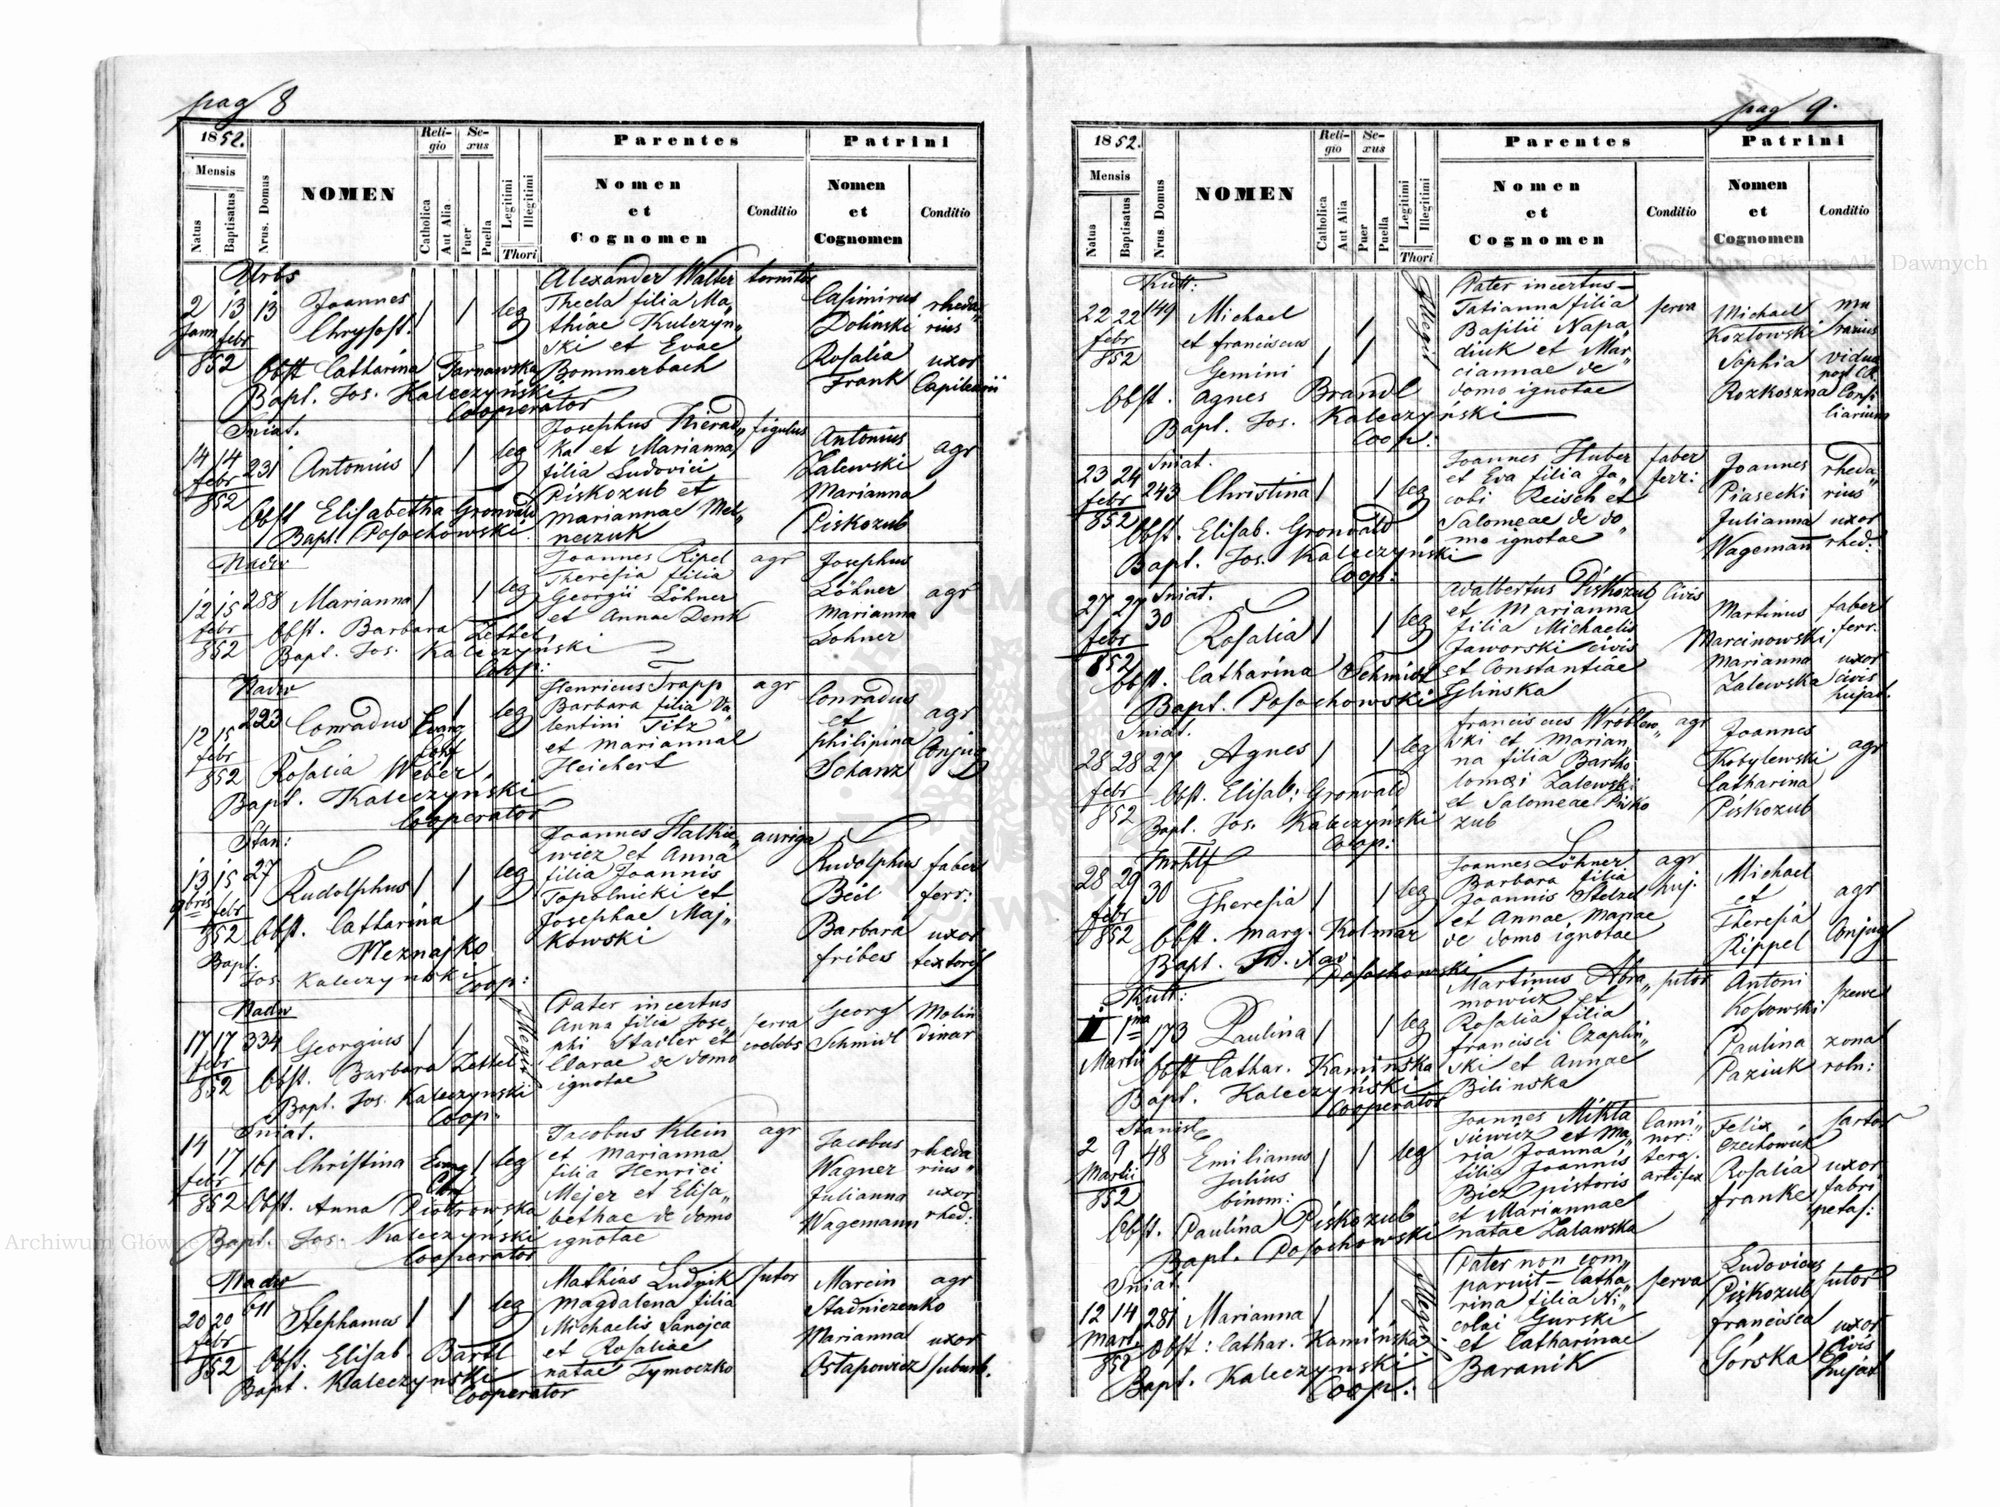 pag 8
1852.
Mensis
Natus
Baptisatus
Nrus. Domus
NOMEN
Religio
Catholica
Aut Alia
Sexus
Puer
Puella
Legitimi
Illegitimi
Thori
Parentes
Nomen
et
Cognomen
Conditio
Patrini
Nomen
et
Cognomen
Conditio
Urbs
2 13 13 Joannes
Jann febr Chrysost.
852 Obst Catharina Tarnawska
Bapt. Jos. Kaleczyński
Cooperator
leg
Alexander Walter
Thecla filia Ma„
thiae Kulczyn„
ski et Evae
Bommerbach
Casimirus rheda„
Dolinski rius
Rosalia uxor
Frank
Sniat.
14 14 231 Antonius leg
febr
852 Obst Elisabetha Gronvald
Bapt. Posochowski.
figulus
Ka et Marianna
filia Ludovici
Piskozub et
Mariannae Mel„
neczuk
Antonius agr
Zalewski
Marianna
Piskozub
Nadw
12 15 288 Marianna leg
febr
852 Obst. Barbara Zettel
Bapt. Jos. Kaleczyński
Coop:
Joannes Ripel agr
Theresia filia
Georgii Löhner
et Annae Denk
Josephus
Löhner agr
Marianna
Lohner
Nadw
12 15 223 Conradus Evang leg
febr
852 Rosalia Weber
Bapt. Kaleczyński
Cooperator
Henricus Trapp agr
Barbara filia Va„
lentini Titz
et Mariannae
Heichert
Conradus
et agr
Philipina Conjug
Schanz
Stan:
13 15 27 Rudolphus leg
9bris febr
852 Obst. Catharina
Meznajko
Bapt.
Jos. Kaleczyński Coop:
Joannes Halkie„ auriga
wicz et Anna
filia Joannis
Topolnicki et
Josephae Maj„
Kowski
Rudolphus faber
Beil ferr:
Barbara uxor
fribes textoris
Nadw
17 17 334 Georgius Illegit
febr
852 Obst. Barbara Zettel
Bapt. Jos. Kaleczynski
Coop:
Pater incertus
Anna filia Jose„ serva
phi Stadler et coelebs
Clarae de domo
ignotae
Georg Molin
Schmid dinar
Sniat.
14 17 161 Christina Evang leg
febr
852 Obst. Anna Piotrowska
Bapt. Jos. Kaleczyński
Cooperator
Jacobus Klein agr
et Marianna
filia Henrici
Mejer et Elisa„
bethae de domo
ignotae
Jacobus rheda
Wagner rius„
Julianna uxor
Wagemann rhed:
Nadw
20 20 611 Stephanus leg
febr
852 Obst. Elisab. Bartl
Bapt. Kaleczynski
Cooperator
Mathias Ludwik sutor
Magdalena filia
Michaelis Sanojca
et Rosaliae
natae Tymoczko
Marcin agr
Stadniczenko
Marianna uxor
Ostapowicz suburb.
pag 9.
1852.
Mensis
Natus
Baptisatus
Nrus. Domus
NOMEN
Religio
Catholica
Aut Alia
Sexus
Puer
Puella
Legitimi
Illegitimi
Thori
Parentes
Nomen
et
Cognomen
Conditio
Patrini
Nomen
et
Cognomen
Conditio
Kutt:
22 22 149 Michael
febr et franciscus
852 Gemini
Obst. Agnes Brandl
Bapt. Jos. Kaleczyński
Coop:
Illegit
Pater incertus
Tatianna filia serva
Basilii Napa„
diuk et Mar„
ciannae de
domo ignotae
Michael mu
Kozlowski rarius
Sophia vidua
Rozkoszna Consi
liarium
Sniat.
23 24 243 Christina leg
febr
852 Obst. Elisab. Gronvald
Bapt. Jos. Kaleczyński
Coop:
Joannes Huber faber
et Eva filia Ja„ ferr:
cobi Reisch et
Salomeae de do„
mo ignotae
Joannes rheda„
Piasecki rius
Julianna uxor
Wagemann rhed:
Sniat.
27 29 30 Rosalia leg
febr
852 Obst. Catharina Schmidt
Bapt. Posochowski
Adalbertus Piskozub Civis
et Marianna
filia Michaelis
Jaworski civis
et Constantiae
Glinska
Martinus faber
Marcinowski, ferr.
Marianna uxor
Zalewska civis
hujat.
Sniat.
28 28 27 Agnes leg
febr
852 Obst. Elisab: Gronvald
Bapt. Jos. Kaleczyński
Coop:
Franciscus Wróblew„ agr
ski et Marian„
na filia Bartho
lomaei Zalewski
et Salomeae Pisko
zub
Joannes
Kobylewski agr
Catharina
Piskozub
28 29 30 Theresia leg
febr
852 Obst. Marg. Kolmar
Bapt. Fr. Xav
Posochowski
Joannes Löhner agr
Barbara filia huj.
Joannis Stelzel
et Annae Mariae
de domo ignotae
Michael
et agr
Theresia Conjug
Rippel
Kutt:
1 173 Paulina leg
Martii Obst Cathar. Kamińska
Bapt. Kaleczyński
Cooperator
Martinus Abra„ sutor
mowicz et
Rosalia filia
Francisci Czaplin„
ski et Annae
Bilinska
Antoni szewc
Kossowski
Paulina zona
Paziuk roln:
Stanisl
2 9 48 Emilianus leg
Martii Julius
852 binom:
Obst. Paulina Piskozub
Bapt. Posochowski
Joannes Mikla Cami„
siewicz et Ma„ nor:
ria Joanna terg.
filia Joannis artifex
Biez pistoris
et Mariannae
natae Zalawska
Felix sartor
Czechowicz
Rosalia uxor
Franke fabri
petas:
Sniat.
12 14 281 Marianna
Mart.
852 Obst: Cathar. Kamińska
Bapt. Kaleczyński
Coop:
Illegit
Pater non com„
paruit – Catha„ serva
rina filia Ni„
colai Gurski
et Catharinae
Baranik
Ludovicus
Piskozub sutor
Francisca uxor
Górska Civis
hujat
Archiwum Główne Akt Dawnych